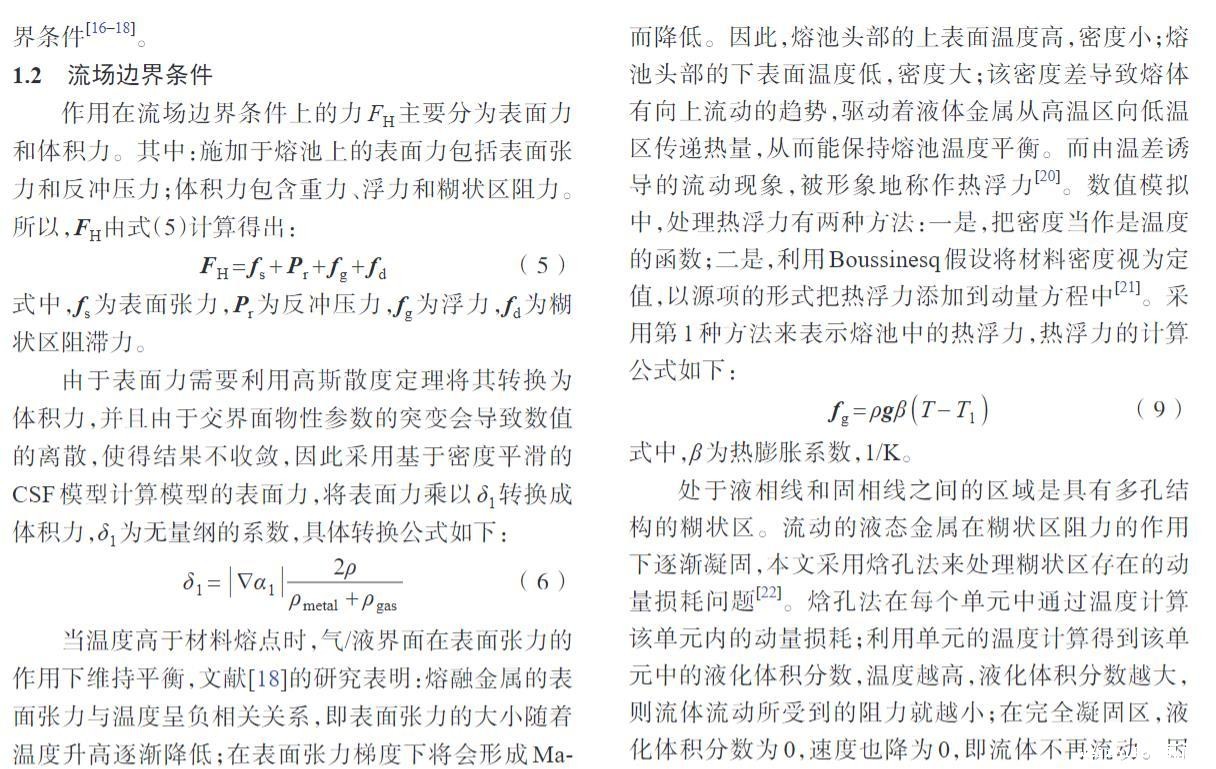 界条件[16–18]。
1.2 流场边界条件
作用在流场边界条件上的力FH主要分为表面力
和体积力。其中:施加于熔池上的表面力包括表面张
力和反冲压力;体积力包含重力、浮力和糊状区阻力。
所以,FH由式(5)计算得出:
FH=fs+Pr+fg+fd (5)
式中,fs为表面张力,Pr为反冲压力,fg为浮力,fd为糊
状区阻滞力。
由于表面力需要利用高斯散度定理将其转换为
体积力,并且由于交界面物性参数的突变会导致数值
的离散,使得结果不收敛,因此采用基于密度平滑的
CSF模型计算模型的表面力,将表面力乘以δ1转换成
体积力,δ1为无量纲的系数,具体转换公式如下:
δ1=|∇α1| 2ρ/(ρmetal+ρgas) (6)
当温度高于材料熔点时,气/液界面在表面张力的
作用下维持平衡,文献[18]的研究表明:熔融金属的表
面张力与温度呈负相关关系,即表面张力的大小随着
温度升高逐渐降低;在表面张力梯度下将会形成Ma-
而降低。因此,熔池头部的上表面温度高,密度小;熔
池头部的下表面温度低,密度大;该密度差导致熔体
有向上流动的趋势,驱动着液体金属从高温区向低温
区传递热量,从而能保持熔池温度平衡。而由温差诱
导的流动现象,被形象地称作热浮力[20]。数值模拟
中,处理热浮力有两种方法:一是,把密度当作是温度
的函数;二是,利用Boussinesq假设将材料密度视为定
值,以源项的形式把热浮力添加到动量方程中[21]。采
用第1种方法来表示熔池中的热浮力,热浮力的计算
公式如下:
fg=ρgβ(T−Tl) (9)
式中,β为热膨胀系数,1/K。
处于液相线和固相线之间的区域是具有多孔结
构的糊状区。流动的液态金属在糊状区阻力的作用
下逐渐凝固,本文采用焓孔法来处理糊状区存在的动
量损耗问题[22]。焓孔法在每个单元中通过温度计算
该单元内的动量损耗;利用单元的温度计算得到该单
元中的液化体积分数,温度越高,液化体积分数越大,
则流体流动所受到的阻力就越小;在完全凝固区,液
化体积分数为0,速度也降为0,即流体不再流动。因